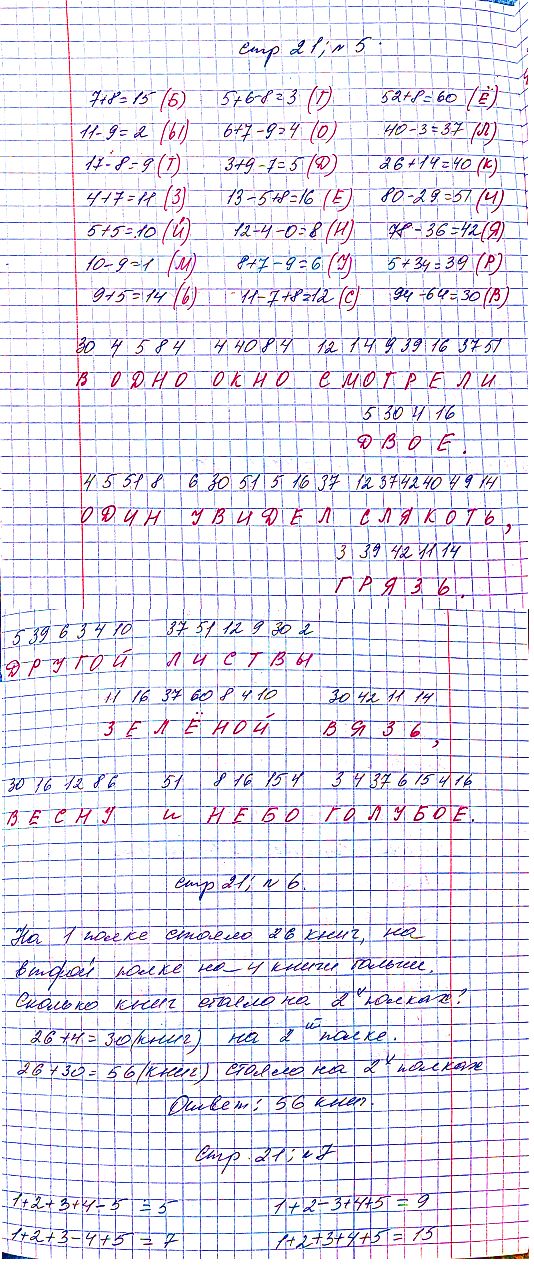 стр 21; № 5.
7+8=15 (Б) 5+6-8=3 (Г) 52+8=60 (Ё)
11-9=2 (Ы) 6+7-9=4 (О) 40-3=37 (Л)
17-8=9 (Т) 3+9-7=5 (Д) 26+14=40 (К)
4+7=11 (З) 13-5+8=16 (Е) 80-29=51 (И)
5+5=10 (Й) 12-4-0=8 (Н) 78-36=42 (Я)
10-9=1 (М) 8+7-9=6 (У) 5+34=39 (Р)
9+5=14 (Ь) 11-7+8=12 (С) 94-64=30 (В)
30 4 5 8 4 4 40 8 4 12 1 4 9 39 16 37 51
В ОДНО ОКНО СМОТРЕЛИ
5 30 4 16
ДВОЕ.
4 5 51 8 6 30 51 5 16 37 12 37 42 40 4 9 14
ОДИН УВИДЕЛ СЛЯКОТЬ,
3 39 42 11 14
ГРЯЗЬ.
5 39 6 3 4 10 37 51 12 9 30 2
ДРУГОЙ ЛИСТВЫ
11 16 37 60 8 4 10 30 42 11 14
ЗЕЛЁНОЙ ВЯЗЬ,
30 16 12 8 6 51 8 16 15 4 3 4 37 6 15 4 16
ВЕСНУ и НЕБО ГОЛУБОЕ.
стр 21; № 6.
На 1 полке стояло 26 книг, на
второй полке на 4 книги больше.
Сколько книг стояло на 2х полках?
26+4=30 (книг) на 2ой полке.
26+30=56 (книг) стояло на 2х полках
Ответ: 56 книг.
Стр. 21; №7
1+2+3+4-5 =5 1+2-3+4+5 = 9
1+2+3-4+5 =7 1+2+3+4+5 = 15